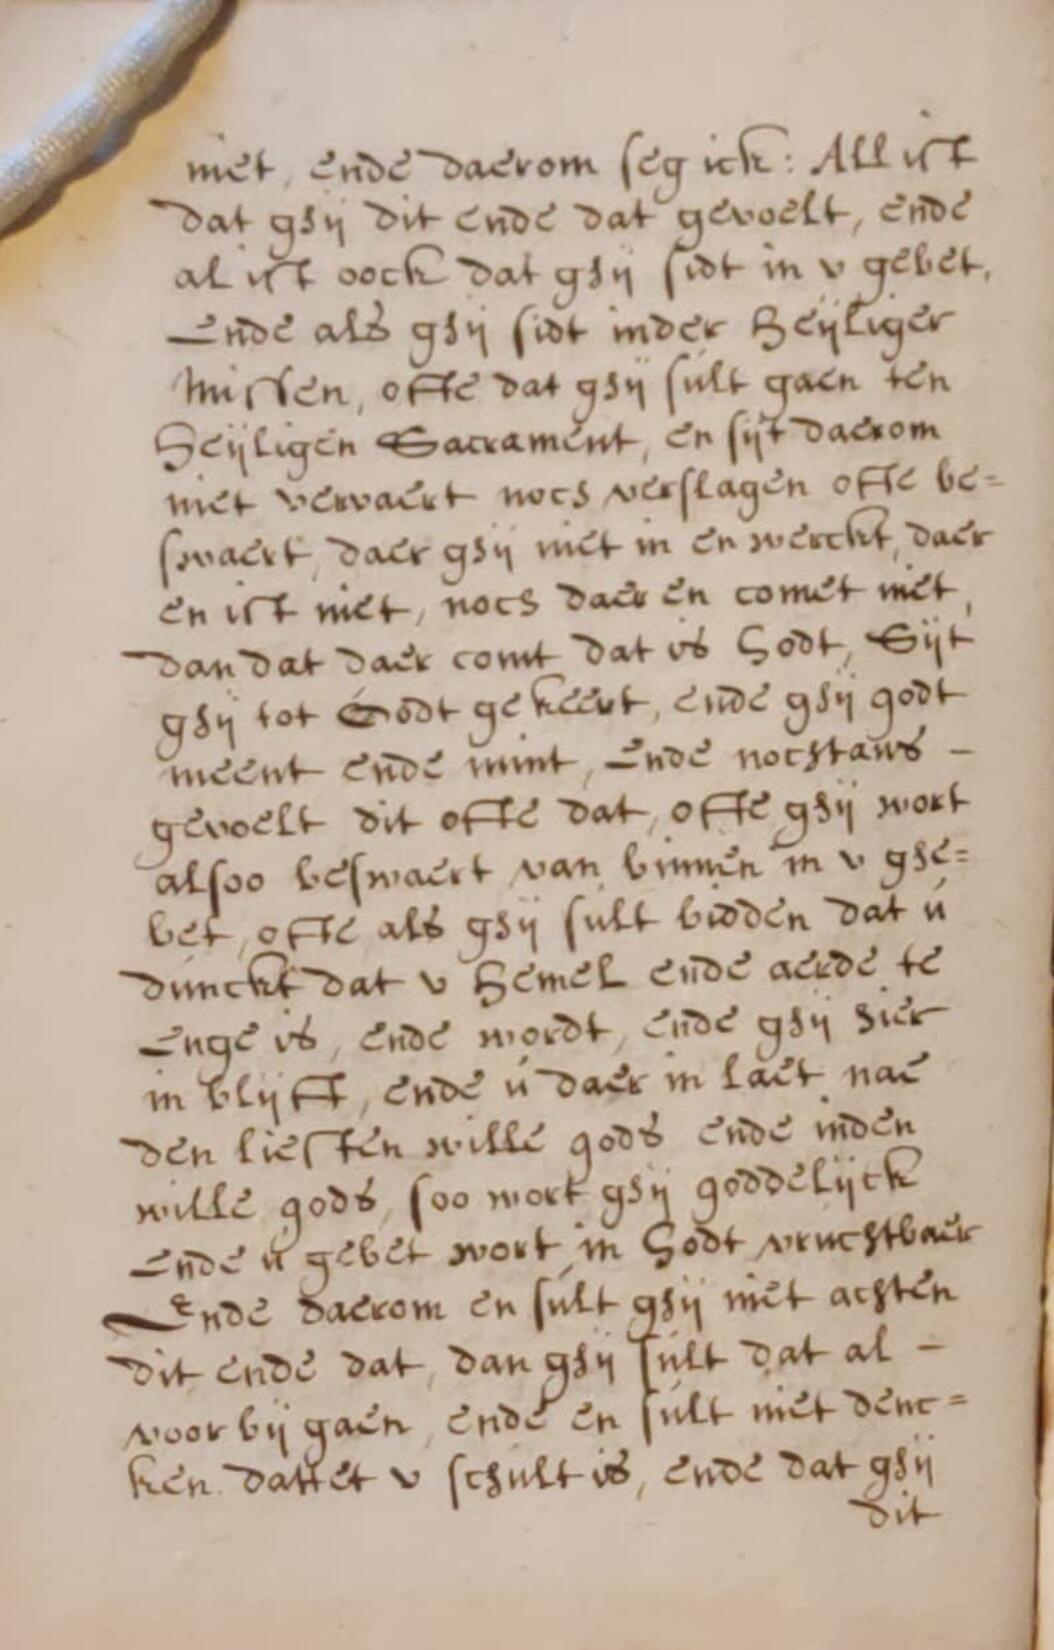 niet, ende daerom seg ick: All ist
dat ghij dit ende dat gevoelt, ende
al ist oock dat ghij sidt in v gebet,
Ende als ghij sidt inder Heijliger
Missen, ofte dat ghij sult gaen ten
Heijligen Sacrament, en sijt daerom
niet vervaert noch verslagen ofte be=
swaert, daer ghij niet in en werckt, daer
en ist niet, noch daer en comet niet,
dan dat daer comt dat is Godt, Sijt
ghij tot Godt gekeert, ende ghij godt
meent ende mint, Ende nochtans -
gevoelt dit ofte dat, ofte ghij wort
alsoo beswaert van binnen in v ghe=
bet, ofte als ghij sult bidden dat u
dunckt dat v Hemel ende aerde te
Enge is, ende wordt, ende ghij hier
in blijft, ende u daer in laet nae
den liefsten wille gods ende inden
wille gods, soo wort ghij goddelijck
Ende u gebet wort in Godt vruchtbaer
Ende daerom en sult ghij niet achten
dit ende dat, dan ghij sult dat al -
voor bij gaen, ende en sult niet denc=
ken dattet v schult is, ende dat ghij
dit